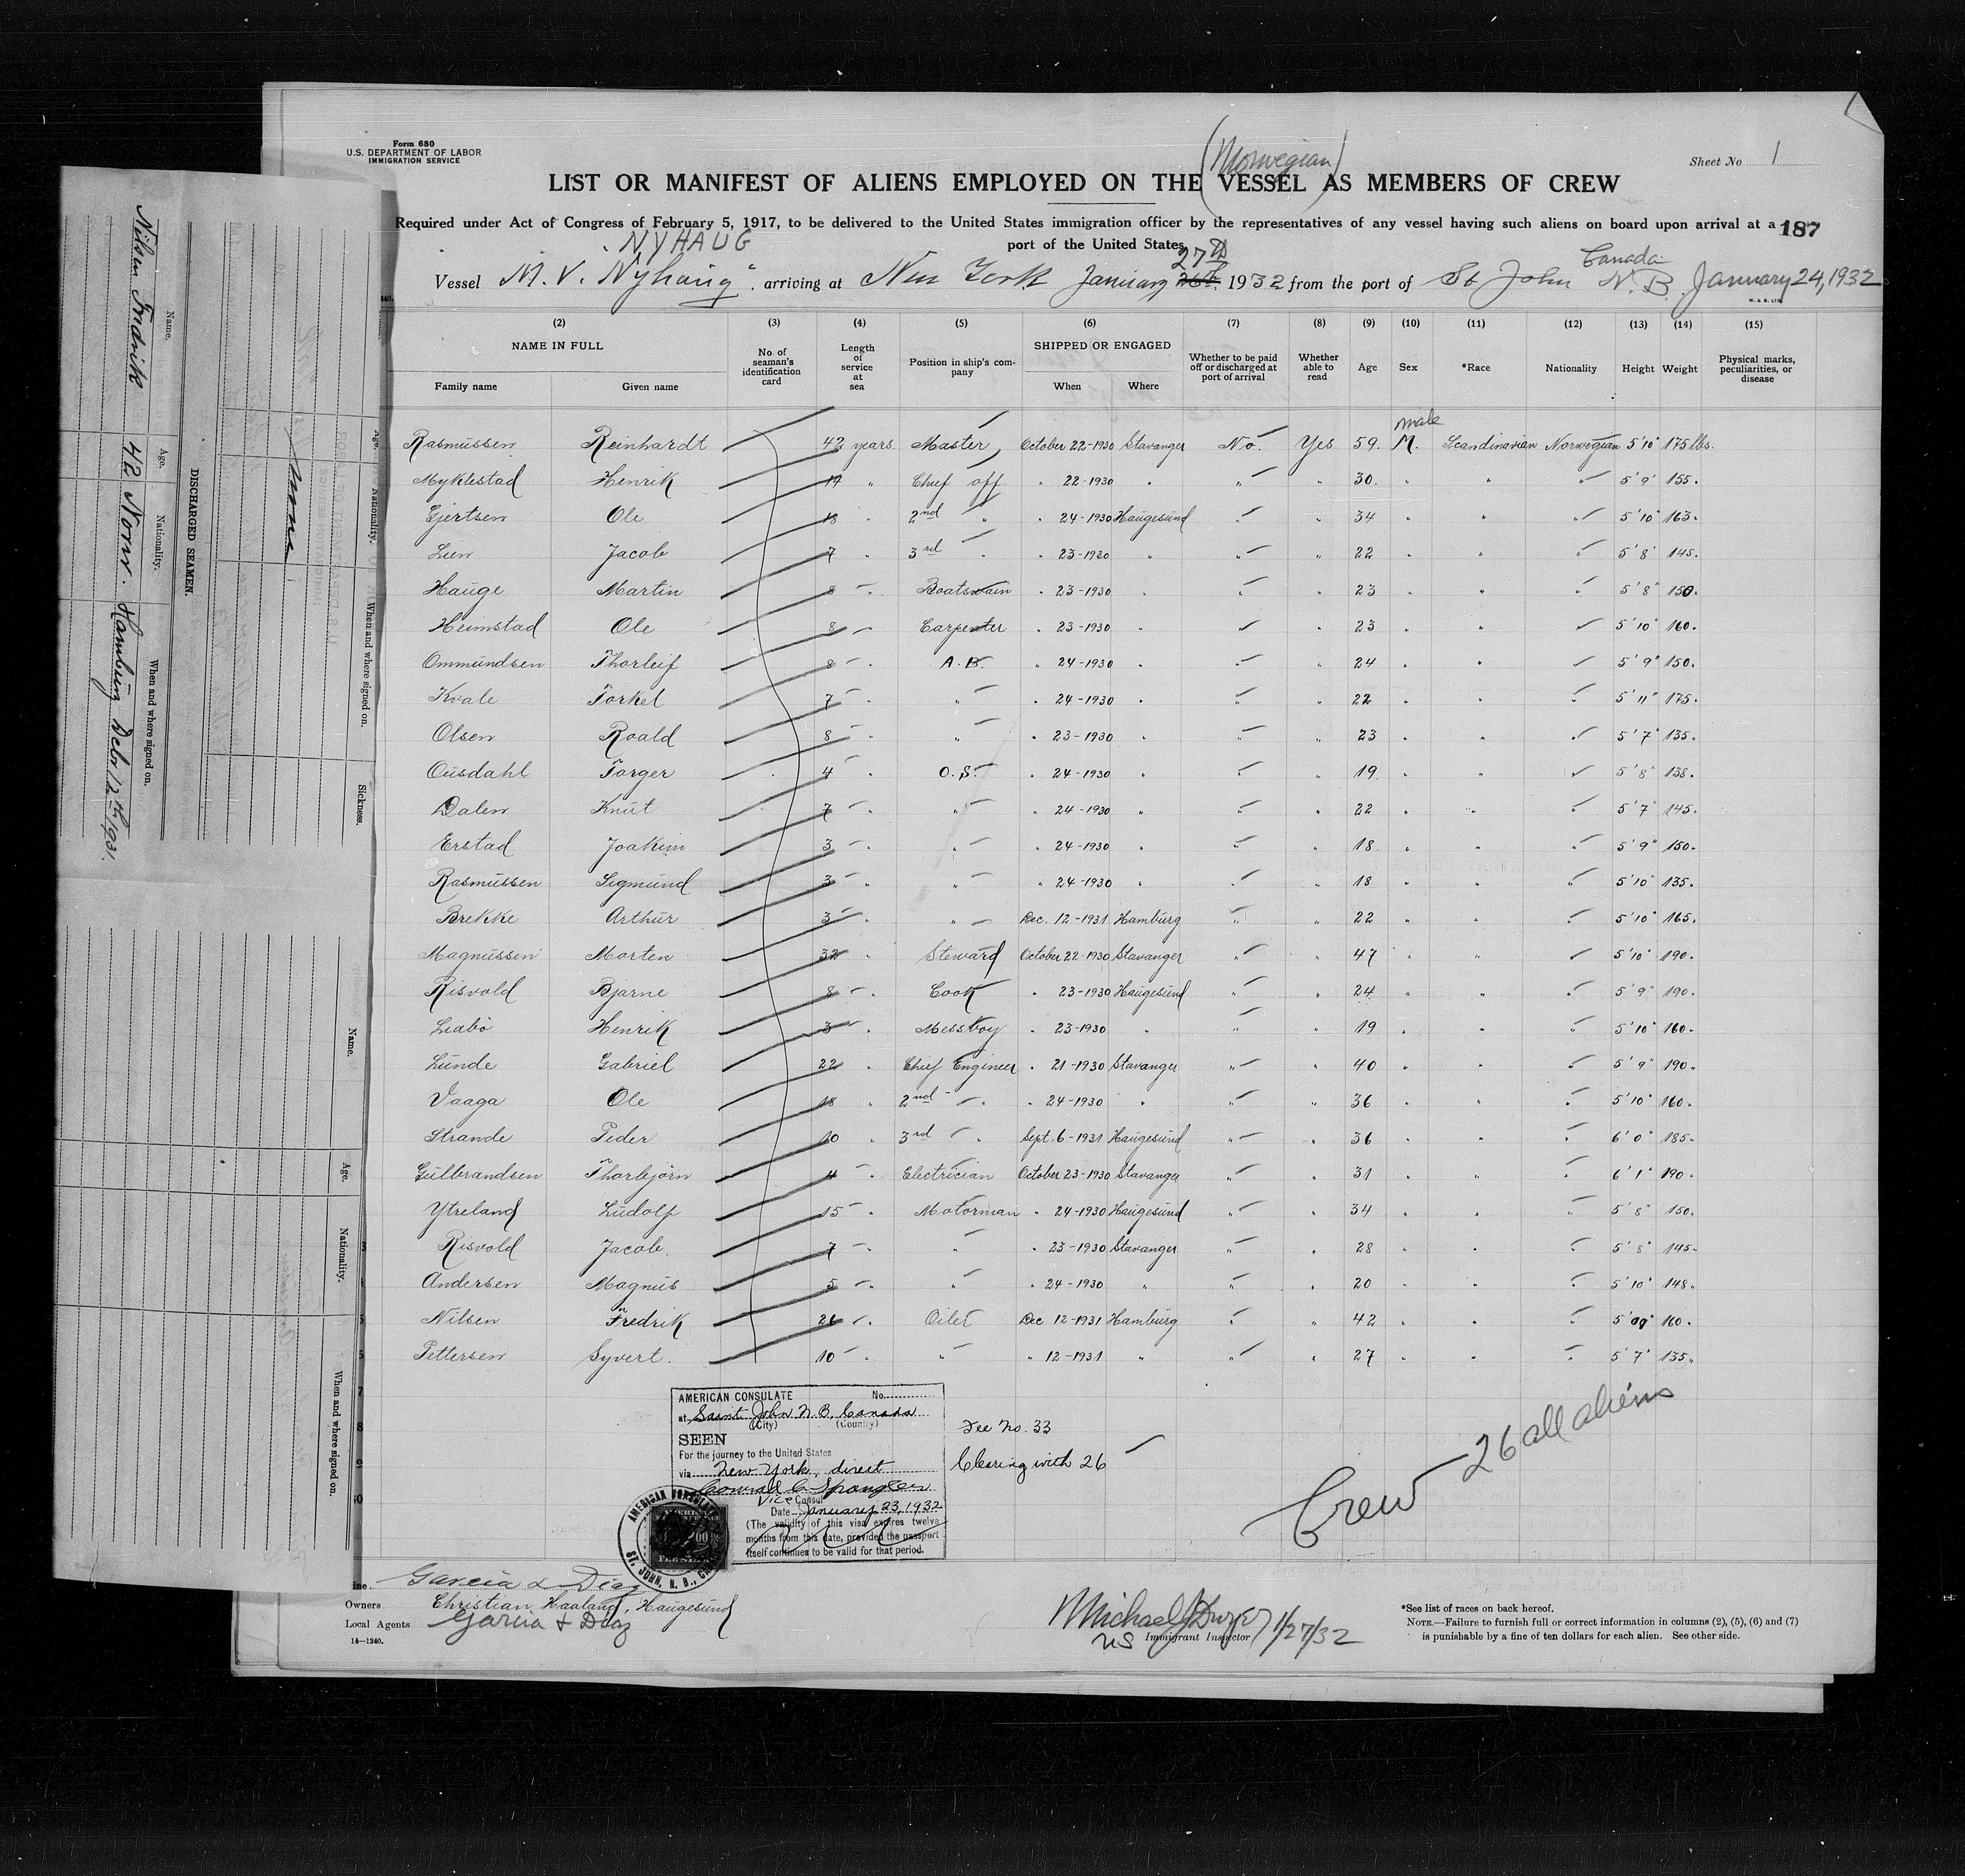 Form 680
U.S. DEPARTMENT OF LABOR
IMMIGRATION SERVICE
(Norwegian)
Sheet No 1
LIST OR MANIFEST OF ALIENS EMPLOYED ON THE VESSEL AS MEMBERS OF CREW
Required under Act of Congress of February 5, 1917, to be delivered to the United States immigration officer by the representatives of any vessel having such aliens on board upon arrival at a
port of the United States
187
NYHAUG
27th
Canada
Vessel M. V. "Nyhaug". arriving at New York January 26th. 1932 from the port of St John N. B. January 24, 1932
W. & E. LTD.
(2) (3) (4) (5) (6) (7) (8) (9) (10) (11) (12) (13) (14) (15)
NAME IN FULL No. of seaman's identification card Length of service at sea Position in ship's company SHIPPED OR ENGAGED Whether to be paid off or discharged at port of arrival Whether able to read Age Sex *Race Nationality Height Weight Physical marks, peculiarities, or disease
Family name Given name When Where
male
Rasmussen Reinhardt 42 years Master October 22-1930 Stavanger No. Yes 59. M. Scandinavian Norwegian 5'10" 175 lbs.
Myklestad Henrik 14 " Chief off " 22-1930 " " " 30. " " " 5'9" 155.
Gjertsen Ole 18 " 2nd " " 24-1930 Haugesund " " 34 " " " 5'10" 163.
Lien Jacob 7 " 3rd " " 23-1930 " " " 22 " " " 5'8" 145.
Hauge Martin 8 " Boatswain " 23-1930 " " " 23 " " " 5'8" 150.
Heimstad Ole 8 " Carpenter " 23-1930 " " 23 " " 5'10" 160.
Ommundsen Thorleif 8 " A.B. " 24-1930 " " " 24 " " 5'9" 150.
Kvale Torkel 7 " " " 24-1930 " " " 22 " " " 5'11" 175.
Olsen Roald 8 " " " 23-1930 " " " 23 " " " 5'7" 135.
Ousdahl Torger 4 " O.S. " 24-1930 " " " 19. " " " 5'8" 138.
Dalen Knut 7 " " " 24-1930 " " " 22 " " " 5'7" 145.
Erstad Joakim 3 " " " 24-1930 " " " 18. " " " 5'9" 150.
Rasmussen Sigmund 3 " " " 24-1930 " " " 18 " " " 5'10" 135.
Brekke Arthur 3 " " Dec. 12-1931 Hamburg " " 22 " " " 5'10" 165.
Magnussen Morten 32 " Steward October 22-1930 Stavanger " " 47 " " 5'10" 190.
Risvold Bjarne 8 " Cook " 23-1930 Haugesund " " 24 " " " 5'9" 190.
Liabö Henrik 3 " Messboy " 23-1930 " " " 19 " " " 5'10" 160.
Lunde Gabriel 22 " Chief Engineer " 21-1930 Stavanger " " 40 " " " 5'9" 190.
Vaaga Ole 18 " 2nd " " 24-1930 " " " 36 " " " 5'10" 160.
Strande Peder 10 " 3rd " Sept. 6-1931 Haugesund " " 36 " " " 6'0" 185.
Gulbrandsen Thorbjörn 4 " Electrician October 23-1930 Stavanger " " 31 " " " 6'1" 190.
Ytreland Ludolf 15 " Motorman " 24-1930 Haugesund " " 34 " " " 5'8" 150.
Risvold Jacob 7 " " " 23-1930 Stavanger " " 28 " " " 5'8" 145.
Andersen Magnus 5 " " " 24-1930 " " " 20 " " " 5'10" 148.
Nilsen Fredrik 26 " Oiler Dec 12-1931 Hamburg " " 42 " " " 160.
Pettersen Syvert. 10 " " " 12-1931 " " " 27 " " " 5'7" 135.
AMERICAN CONSULATE No.
at Saint John N.B. Canada
(City) (Country)
SEEN
For the journey to the United States
via New York, direct
Vice Consul
Date January 23, 1932
(The validity of this visa expires twelve
months from this date, provided the passport
itself continues to be valid for that period.
AMERICAN CONSULATE
ST. JOHN, N. B.,
Fee No. 33
Clearing with 26
Crew 26 all aliens
Garcia & Diaz
Owners Christian Haaland, Haugesund
Local Agents Garcia & Diaz
14—1240.
US Immigrant Inspector 1/27/32
*See list of races on back hereof.
NOTE.—Failure to furnish full or correct information in columns (2), (5), (6) and (7)
is punishable by a fine of ten dollars for each alien. See other side.
DISCHARGED SEAMEN.
Name. Age. Nationality. When and where signed on.
Nilsen Fredrik 42 Norw. Hamburg Debr 12th 1931.
Age. Nationality. When and where signed on. Sickness.
None
Name. Age. Nationality. When and where signed on.